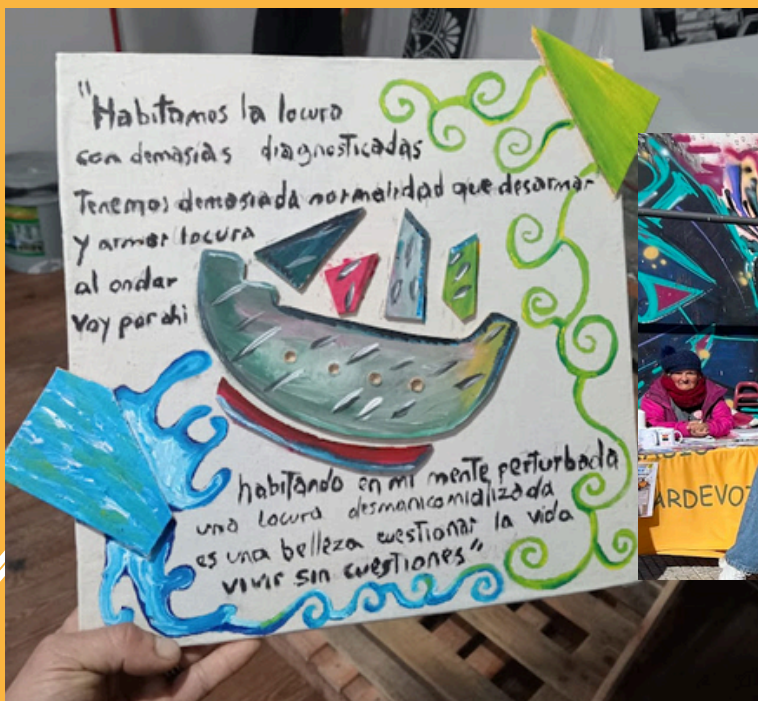 "Habitamos la locura
con demasias diagnosticadas
Tenemos demasiada normalidad que desarmar
y armar locura
al andar
voy por ahi
habitando en mi mente perturbada
una locura desmanicomializada
es una belleza cuestionar la vida
vivir sin cuestiones"
ARDEVOZ